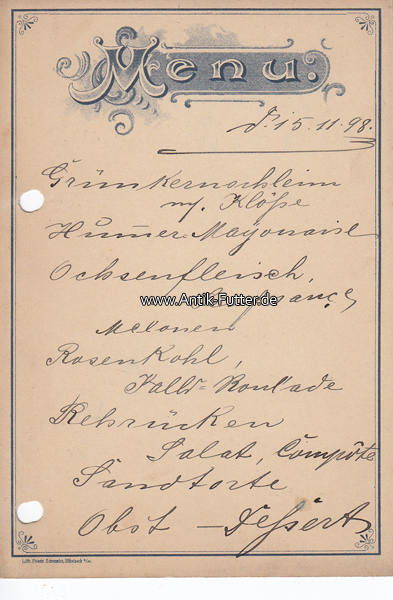 Menu:
d. 15.11.98.
Grünkernschleim
m. Klöße
Hummer-Mayonaise
Ochsenfleisch,
www.Antik-Futter.de
Melonen
Rosenkohl,
Roulade
Rehrücken
Salat, Compôte
Sandtorte
Obst – Dessert